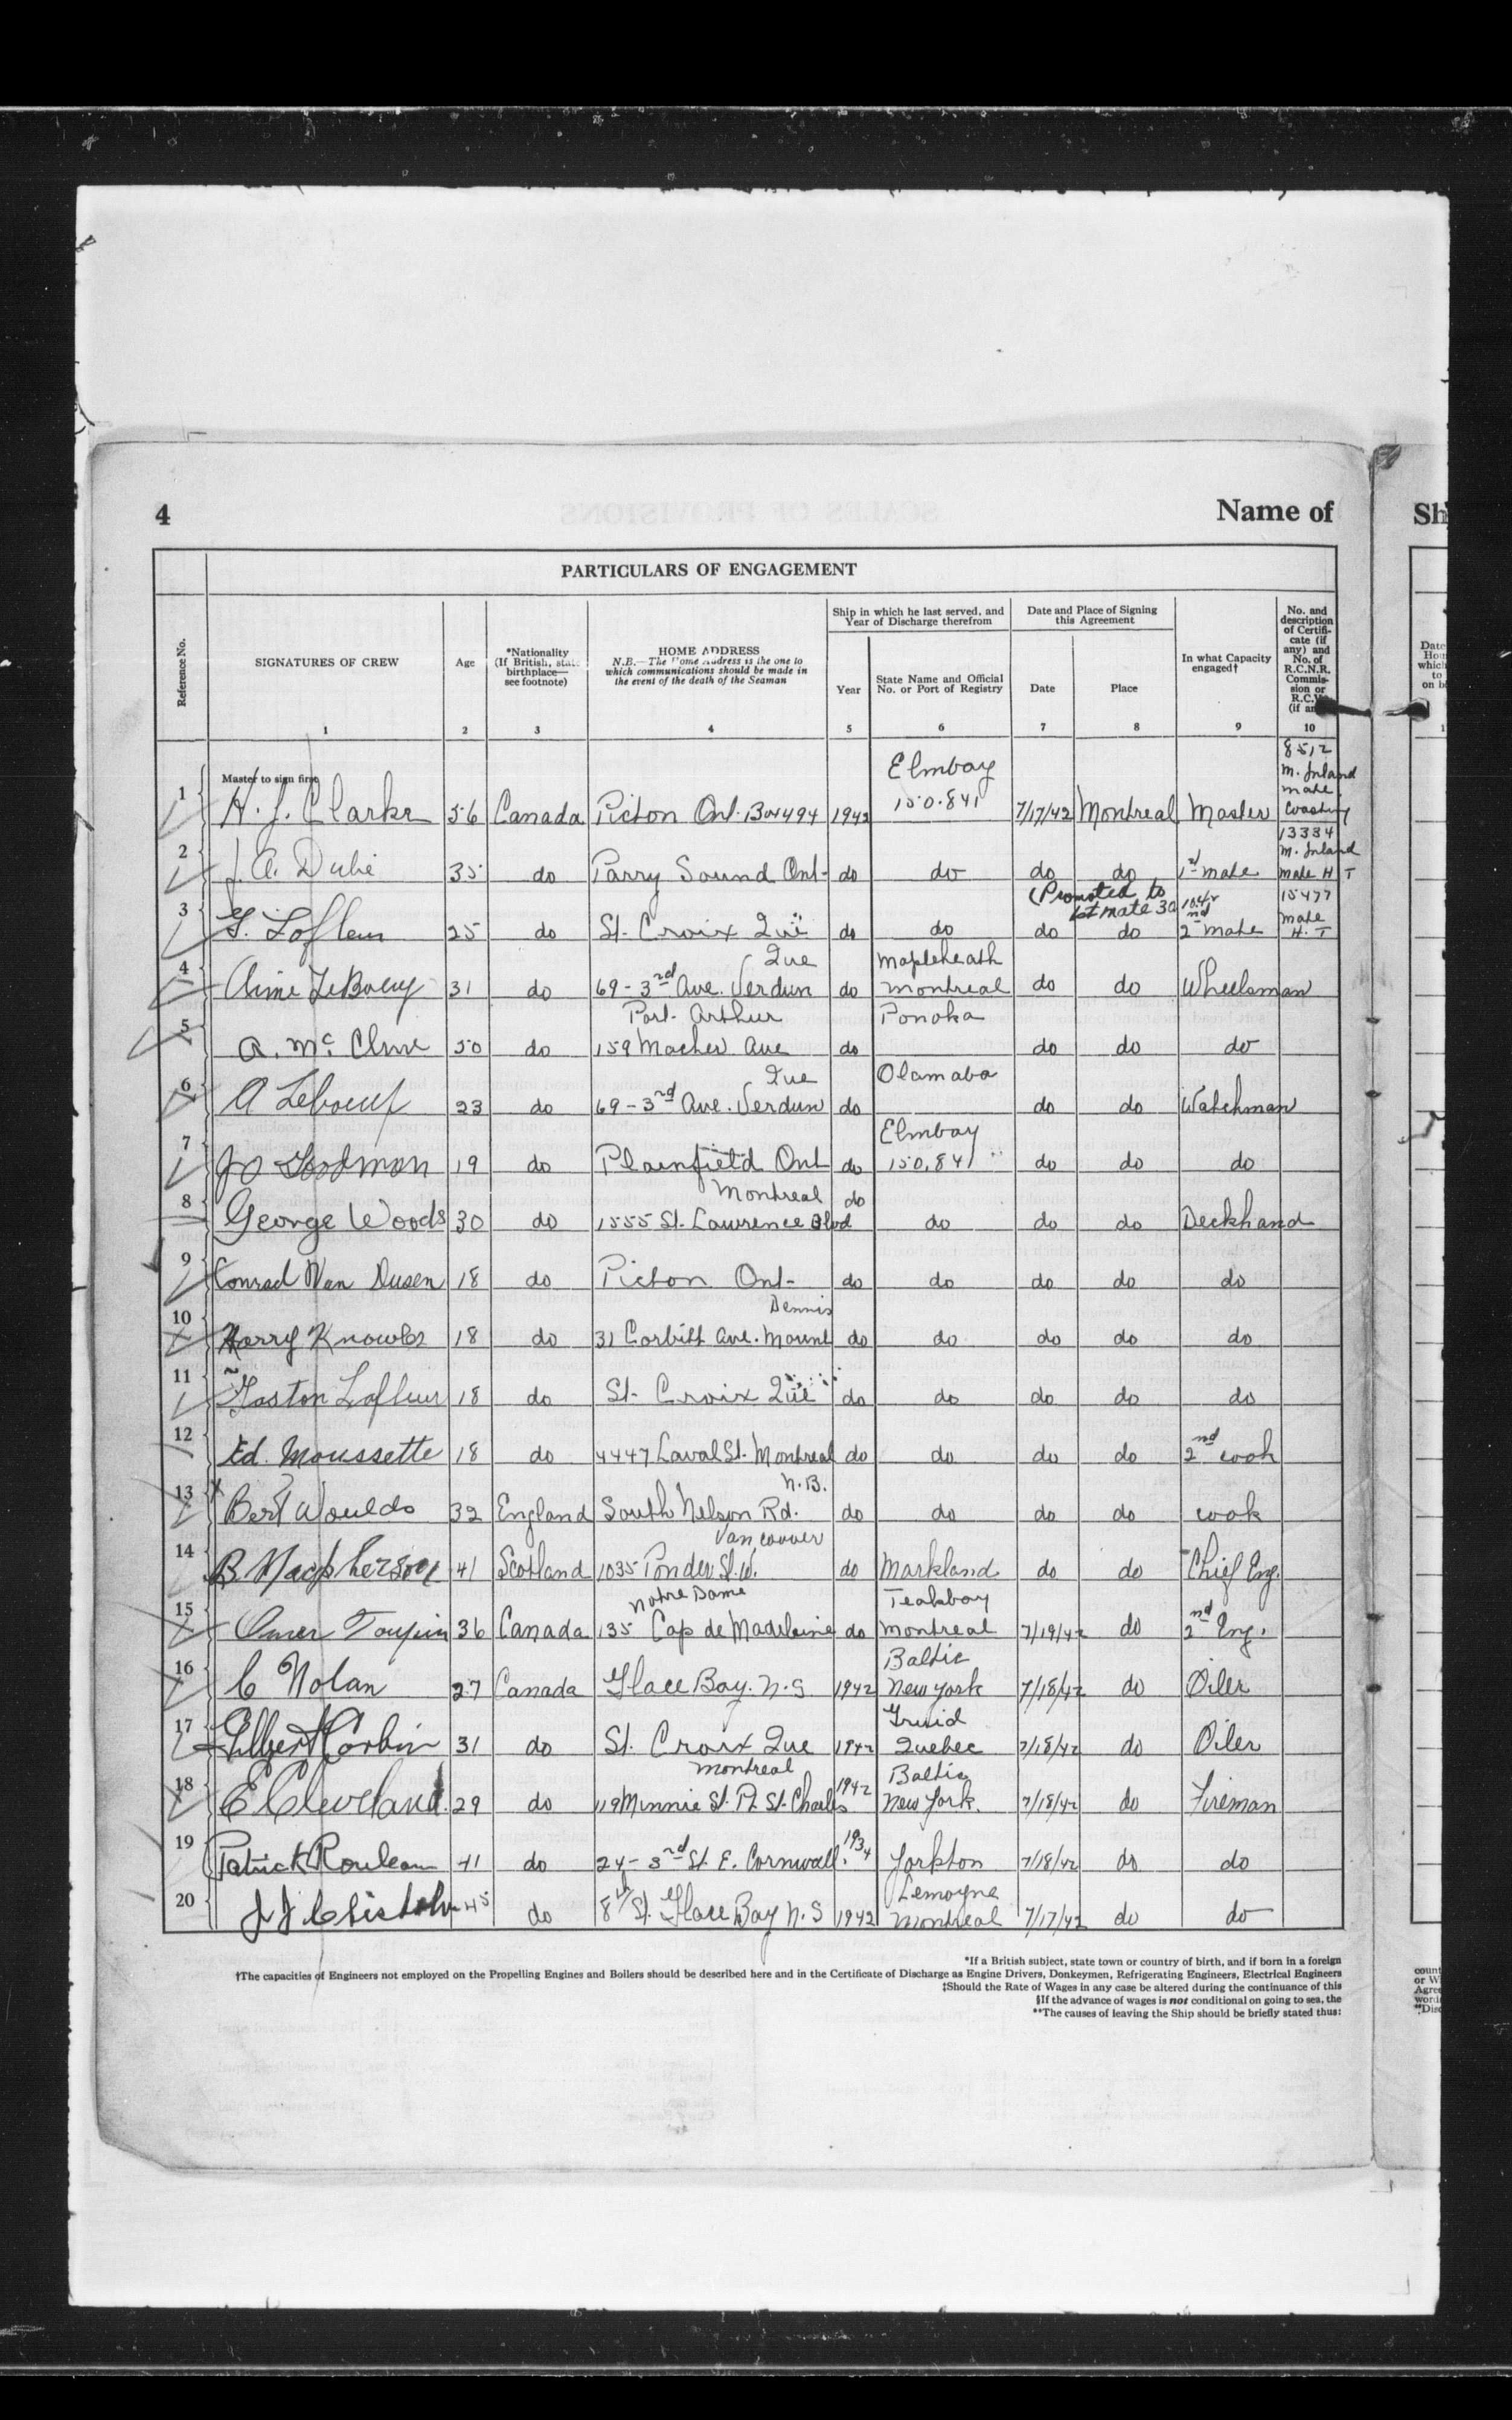 4
Name of
Sh
PARTICULARS OF ENGAGEMENT
Reference No.
SIGNATURES OF CREW
Age
*Nationality
(If British, state
birthplace—
see footnote)
HOME ADDRESS
N.B.—The Home Address is the one to
which communications should be made in
the event of the death of the Seaman
Ship in which he last served, and
Year of Discharge therefrom
Year
State Name and Official
No. or Port of Registry
Date and Place of Signing
this Agreement
Date
Place
In what Capacity
engaged†
No. and
description
of Certifi-
cate (if
any) and
No. of
R.C.N.R.
Commis-
sion or
R.C.V.
(if an
1 2 3 4 5 6 7 8 9 10
Master to sign first
1 H. J. Clarke 56 Canada Picton Ont. Box 494 1942 Elmbay 150.841 7/17/42 Montreal Master 8512 M. Inland mate Coasting
2 J. A. Dubé 35 do Parry Sound Ont- do do do do 1st mate 13334 M. Inland Mate H T
(Promoted to
1st mate 30
3 G. Lafleur 25 do St. Croix Que do do do do 2nd mate 15477 Mate H. T
4 Aime LeBoeuf 31 do 69-3rd Ave. Verdun Que do Mapleheath Montreal do do Wheelsman
5 A. Mc Clure 50 do Port Arthur 159 Machev Ave do Ponoka do do do
6 A Leboeuf 23 do 69-3rd Ave. Verdun Que do Olamaba do do Watchman
7 J O Goodman 19 do Plainfield Ont do Elmbay 150.841 do do do
8 George Woods 30 do Montreal 1555 St. Lawrence Blvd do do do do Deckhand
9 Conrad Van Dusen 18 do Picton Ont- do do do do do
10 Harry Knowles 18 do 31 Corbitt Ave. Mount Dennis do do do do do
11 Gaston Lafleur 18 do St- Croix Que do do do do do
12 Ed. Moussette 18 do 4447 Laval St. Montreal do do do do 2nd cook
13 X Bert Woulds 32 England South Nelson Rd. N.B. do do do do cook
14 B. Macpherson 41 Scotland 1035 Ponder St. W. Vancouver do Markland do do Chief Eng.
15 Omer Toupin 36 Canada Notre Dame 135 Cap de Madeleine do Teakbay Montreal 7/19/42 do 2nd Eng.
16 C Nolan 27 Canada Glace Bay. N.S 1942 Baltic New York 7/18/42 do Oiler
17 Corbin 31 do St. Croix Que 1942 Quebec 7/18/42 do Oiler
18 E Cleveland 29 do Montreal 119 Minnie St. Pt. St. Charles 1942 Baltic New York. 7/18/42 do Fireman
19 Patrick Rouleau 41 do 24-3rd St. E. Cornwall. 1934 Yorkton 7/18/42 do do
20 J J Chisholm 45 do 8th St. Glace Bay N.S 1942 Lemoyne Montreal 7/17/42 do do
*If a British subject, state town or country of birth, and if born in a foreign
†The capacities of Engineers not employed on the Propelling Engines and Boilers should be described here and in the Certificate of Discharge as Engine Drivers, Donkeymen, Refrigerating Engineers, Electrical Engineers
‡Should the Rate of Wages in any case be altered during the continuance of this
§If the advance of wages is not conditional on going to sea, the
**The causes of leaving the Ship should be briefly stated thus: